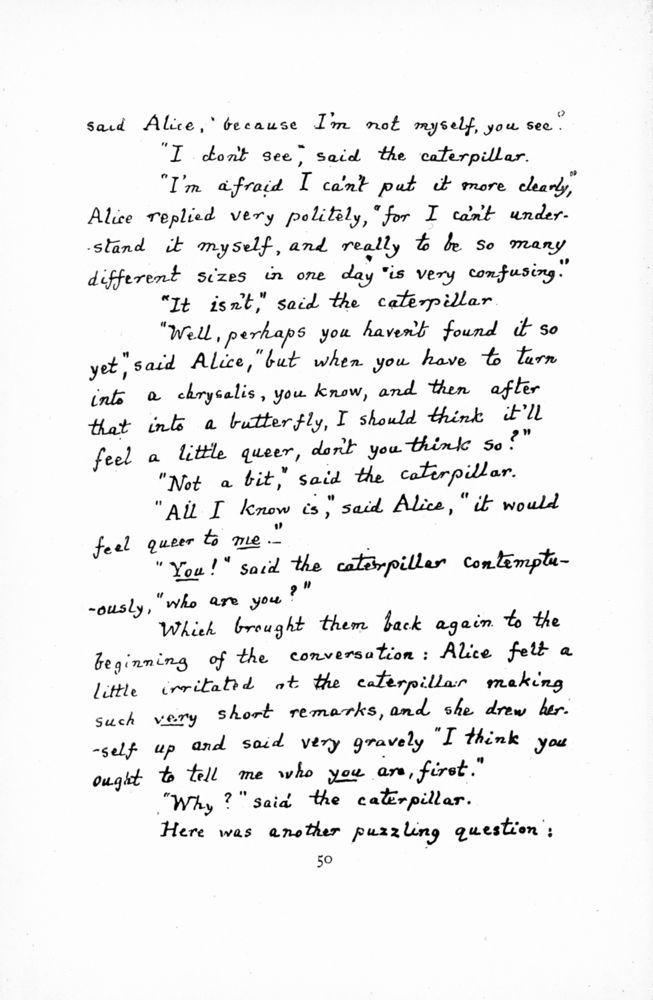 said Alice, "because I'm not myself, you see."
"I don't see," said the caterpillar.
"I'm afraid I can't put it more clearly,"
Alice replied very politely, "for I can't under-
-stand it myself, and really to be so many
different sizes in one day is very confusing."
"It isn't," said the caterpillar
"Well, perhaps you haven't found it so
yet," said Alice, "but when you have to turn
into a chrysalis, you know, and then after
that into a butterfly, I should think it'll
feel a little queer, don't you think so?"
"Not a bit," said the caterpillar.
"All I know is," said Alice, "it would
feel queer to me."
"You!" said the caterpillar contemptu-
-ously, "who are you?"
Which brought them back again to the
beginning of the conversation: Alice felt a
little irritated at the caterpillar making
such very short remarks, and she drew her-
-self up and said very gravely "I think you
ought to tell me who you are, first."
"Why?" said the caterpillar.
Here was another puzzling question:
50